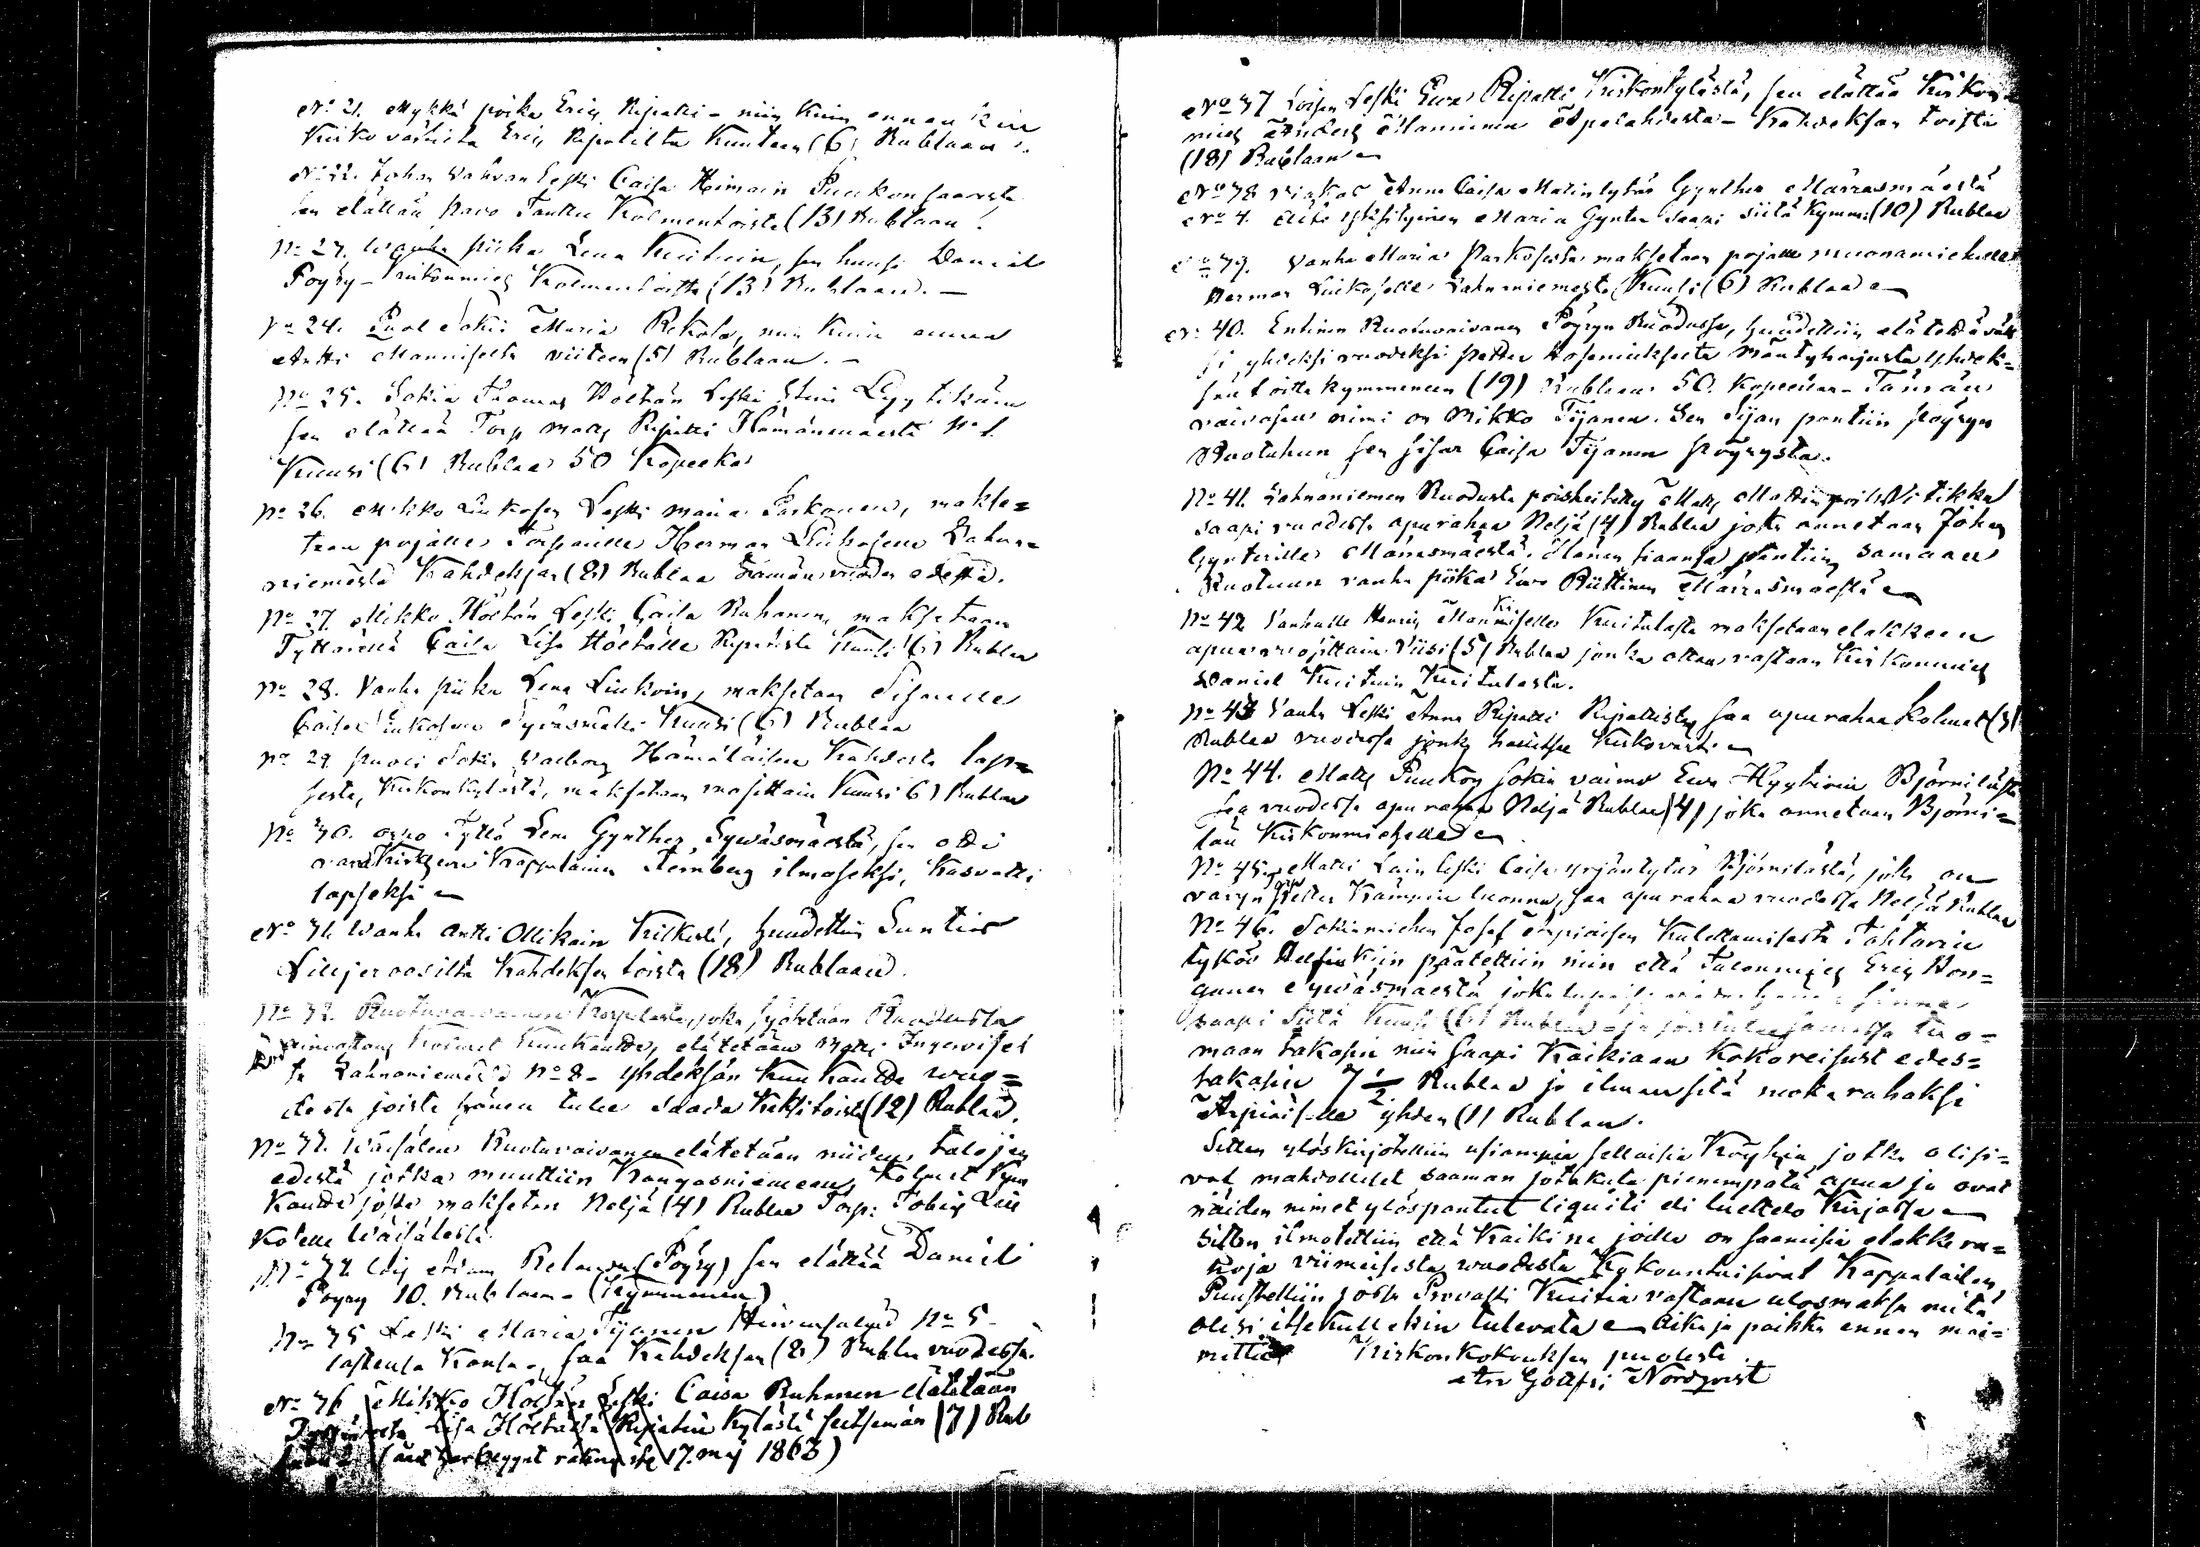 No 21. Mykkä poika Eric Ripatti - niin kuin ennenkin
Kirkovärtiltä Eric Ripatilta Kuuteen (6) Rublaan.
No 22. Johan Vahvan Leski Caisa Heimoin Puukonsaaresta
sen elättää Pavo Tanttu Kolmentoista (13) Rublaan.
No 23. Wanha piika Lena Kuituin, sen huusi Daniel
Pöyry - Kirkonmies Kolmentoista (13) Rublaan. -
No 24. Puol Sokia Maria Rekola, niin kuin ennen
Antti Manniselta viiteen (5) Rublaan. -
No 25. Sokia Thomas Höltän Leski Stina Lyytikäin
sen elättää Torp Matts Ripatti Hämänmäestä No 1.
Kuusi (6) Rublaa 50 Kopeekaa
No 26. Mikko Liukosen Leski Maria Paskonen, makse=
taan pojalle Torparille Herman Liukoselle Lahna=
niemestä Kahdeksan (8) Rublaa tämän vuoden edestä.
No 27. Mikko Höltän Leski Caisa Ruhanen, maksetaan
Tyttärellä Caisa Lisa Höltälle Ripatista Kuusi (6) Rublaa
No 28. Vanha piika Lena Liukoin, maksetaan Sisarelle
Caisa Liukoselle Syväsmäki Kuusi (6) Rublaa
No 29 puoli Sokia Valborg Hämäläisen Kahdesta lap=
sesta, Kirkonkylästä, maksetaan vuosittain Kuusi (6) Rublaa
No 30. orpo Tyttö Lena Gynther Syväsmäestä, sen otti
Kappalainen Ternberg ilmaseksi, Kasvatti
lapseksi
No 31. Wanha Antti Ollikain Kilkistä, huudettiin Suntio
Liljeroosilta Kahdeksan toista (18) Rublaan.
No 32. Ruotuvaivanen Korpelasta, joka syötetään Ruodussa
ainoastans Kolmet Kuukautta, elätetään Matts Ingervisel
tä Lahnaniemestä No 8 - yhdeksän Kuukautta vuo=
dessa joista hänen tulee saada Kaksitoista (12) Rublaa.
No 33. Wäisälän Ruotuvaivanen elätetään niiden talojen
edestä jotka muuttiin Kangasniemeen, Kolmet Kuu
Kautta josta maksetan Neljä (4) Rublaa Torp: Tobias Liu
Koselle Wäisälestä
No 34 Adam Relander (Pöyry) sen elättää Daniel
Pöyry 10. Rublaan - (Kymmenen)
No 35 Leski Maria Tijanen Hirvensalmi No 5 -
lastensa Kansa - saa Kahdeksan (8) Rublaa vuodessa.
No 36 Mikko Höltän Leski Caisa Ruhanen elätetään
Lisa Höltältä Ripatin Kylästä seitsemän (7) Rub
17. maj 1863)
No 37 Loisen Leski Ewa Ripatti Kirkonkylästä, sen elättää Kirkon
mies Anders Manninen Apalahdesta - Kahdeksan toista
(18) Rublaan
No 38 Anna Caisa Matintytär Gynther Marrasmäestä
No 4. äiti Maria Gynter saapi siitä Kymm: (10) Rublaa
No 39. Vanha Maria Paskosesta maksetaan pojalle muonamiehelle
Herman Liukoselle Lahnaniemestä Kuusi (6) Rublaa
No 40. Entinen Ruotuvaivanen Pöyryn Ruodussa, huudettiin elätettävä
si, yhdeksi vuodeksi Petter Kosenenkseeta Mäntyharjusta Yhdek=
sän toista kymmeneen (19) Rublaan 50. kopeekaa - Tämän
vaivasen nimi on Mikko Tijanen. Sen Sijan pantiin Pöyryn
Ruotuhun sen sisar Caisa Tijanen Pöyrystä.
No 41. Lahnaniemen Ruodusta poisheitetty Matts Matinpoika Vitikka
saapi vuodessa apurahaa Neljä (4) Rublaa joka annetaan Johan
Gynterille Marrasmäestä. Hänen siaansa pantiin samaan
Ruotuun vanha piika Ewa Püttinen Marrasmäestä
No 42 Vanhalle Henric Manniselle Kuitulasta maksetaan elakkeen
apua vuosittain Viisi (5) Rublaa jonka ottaa vastaan Kirkonmies
Daniel Kuituin Kuitulasta.
No 43 Vanha Leski Anna Ripatti Ripatista saa apurahaa Kolmet (3)
Rublaa vuodessa jonka hallitsee Kirkovärti
No 44. Matts Puukon Sokia vaimo Ewa Hyytinin Björnilästä
saa vuodessa apurahaa Neljä Rublaa (4) joka annetaan Björni=
län Kirkonmiehelle
No 45. Matti Lain leski Caisa Yrjäntytär Björnilästä, joka on
Petter Krämpin luonna, saa apurahaa vuodessa Neljä Rublaa
No 46. Sokianmiehen Josef Arpiaisen Kulettamisesta Tohtorin
tykö Helsinkiin päätettiin niin että Talonmies Eric Hon=
ganen Syväsmäestä joka lupaisi
saapi siitä Kuusi (6) Rublaa - ja jos tulee samassa tuo=
maan takasin niin saapi Kaikiaan Kokoreisust edes=
takasin 7 1/2 Rublaa ja ilman sitä ruokarahaksi
Arpiaiselle yhden (1) Rublan.
Sitten ylöskirjotettiin usiampia sellaisia Köyhiä jotka olisi=
vat mahdolliset saaman jotakuta pienempätä apua ja ovat
näiden nimet ylöspantut liquiti eli luettelo Kirjassa
Sitten ilmotettiin että Kaikine joilla on saamisia elakkera=
hoja viimeisestä vuodesta Kokountuisivat Kappalaisen
Puustelliin jossa Provasti Kuitia vastaan ulosmaksa mitä
olisi itse kullekin tulevata Aika ja paikka ennen mai=
nittu Kirkonkokouksen puolesta.
And Gottfri: Nordqvist